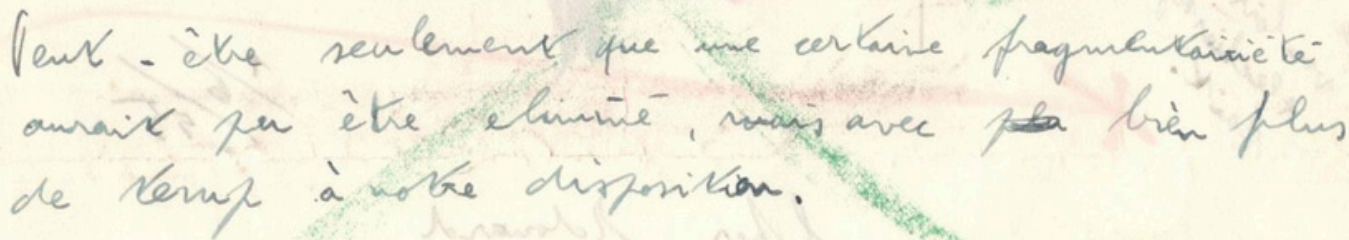 Peut-être seulement que une certaine fragmentairiété
aurait pu être eliminé, mais avec bien plus
de temp à notre disposition.